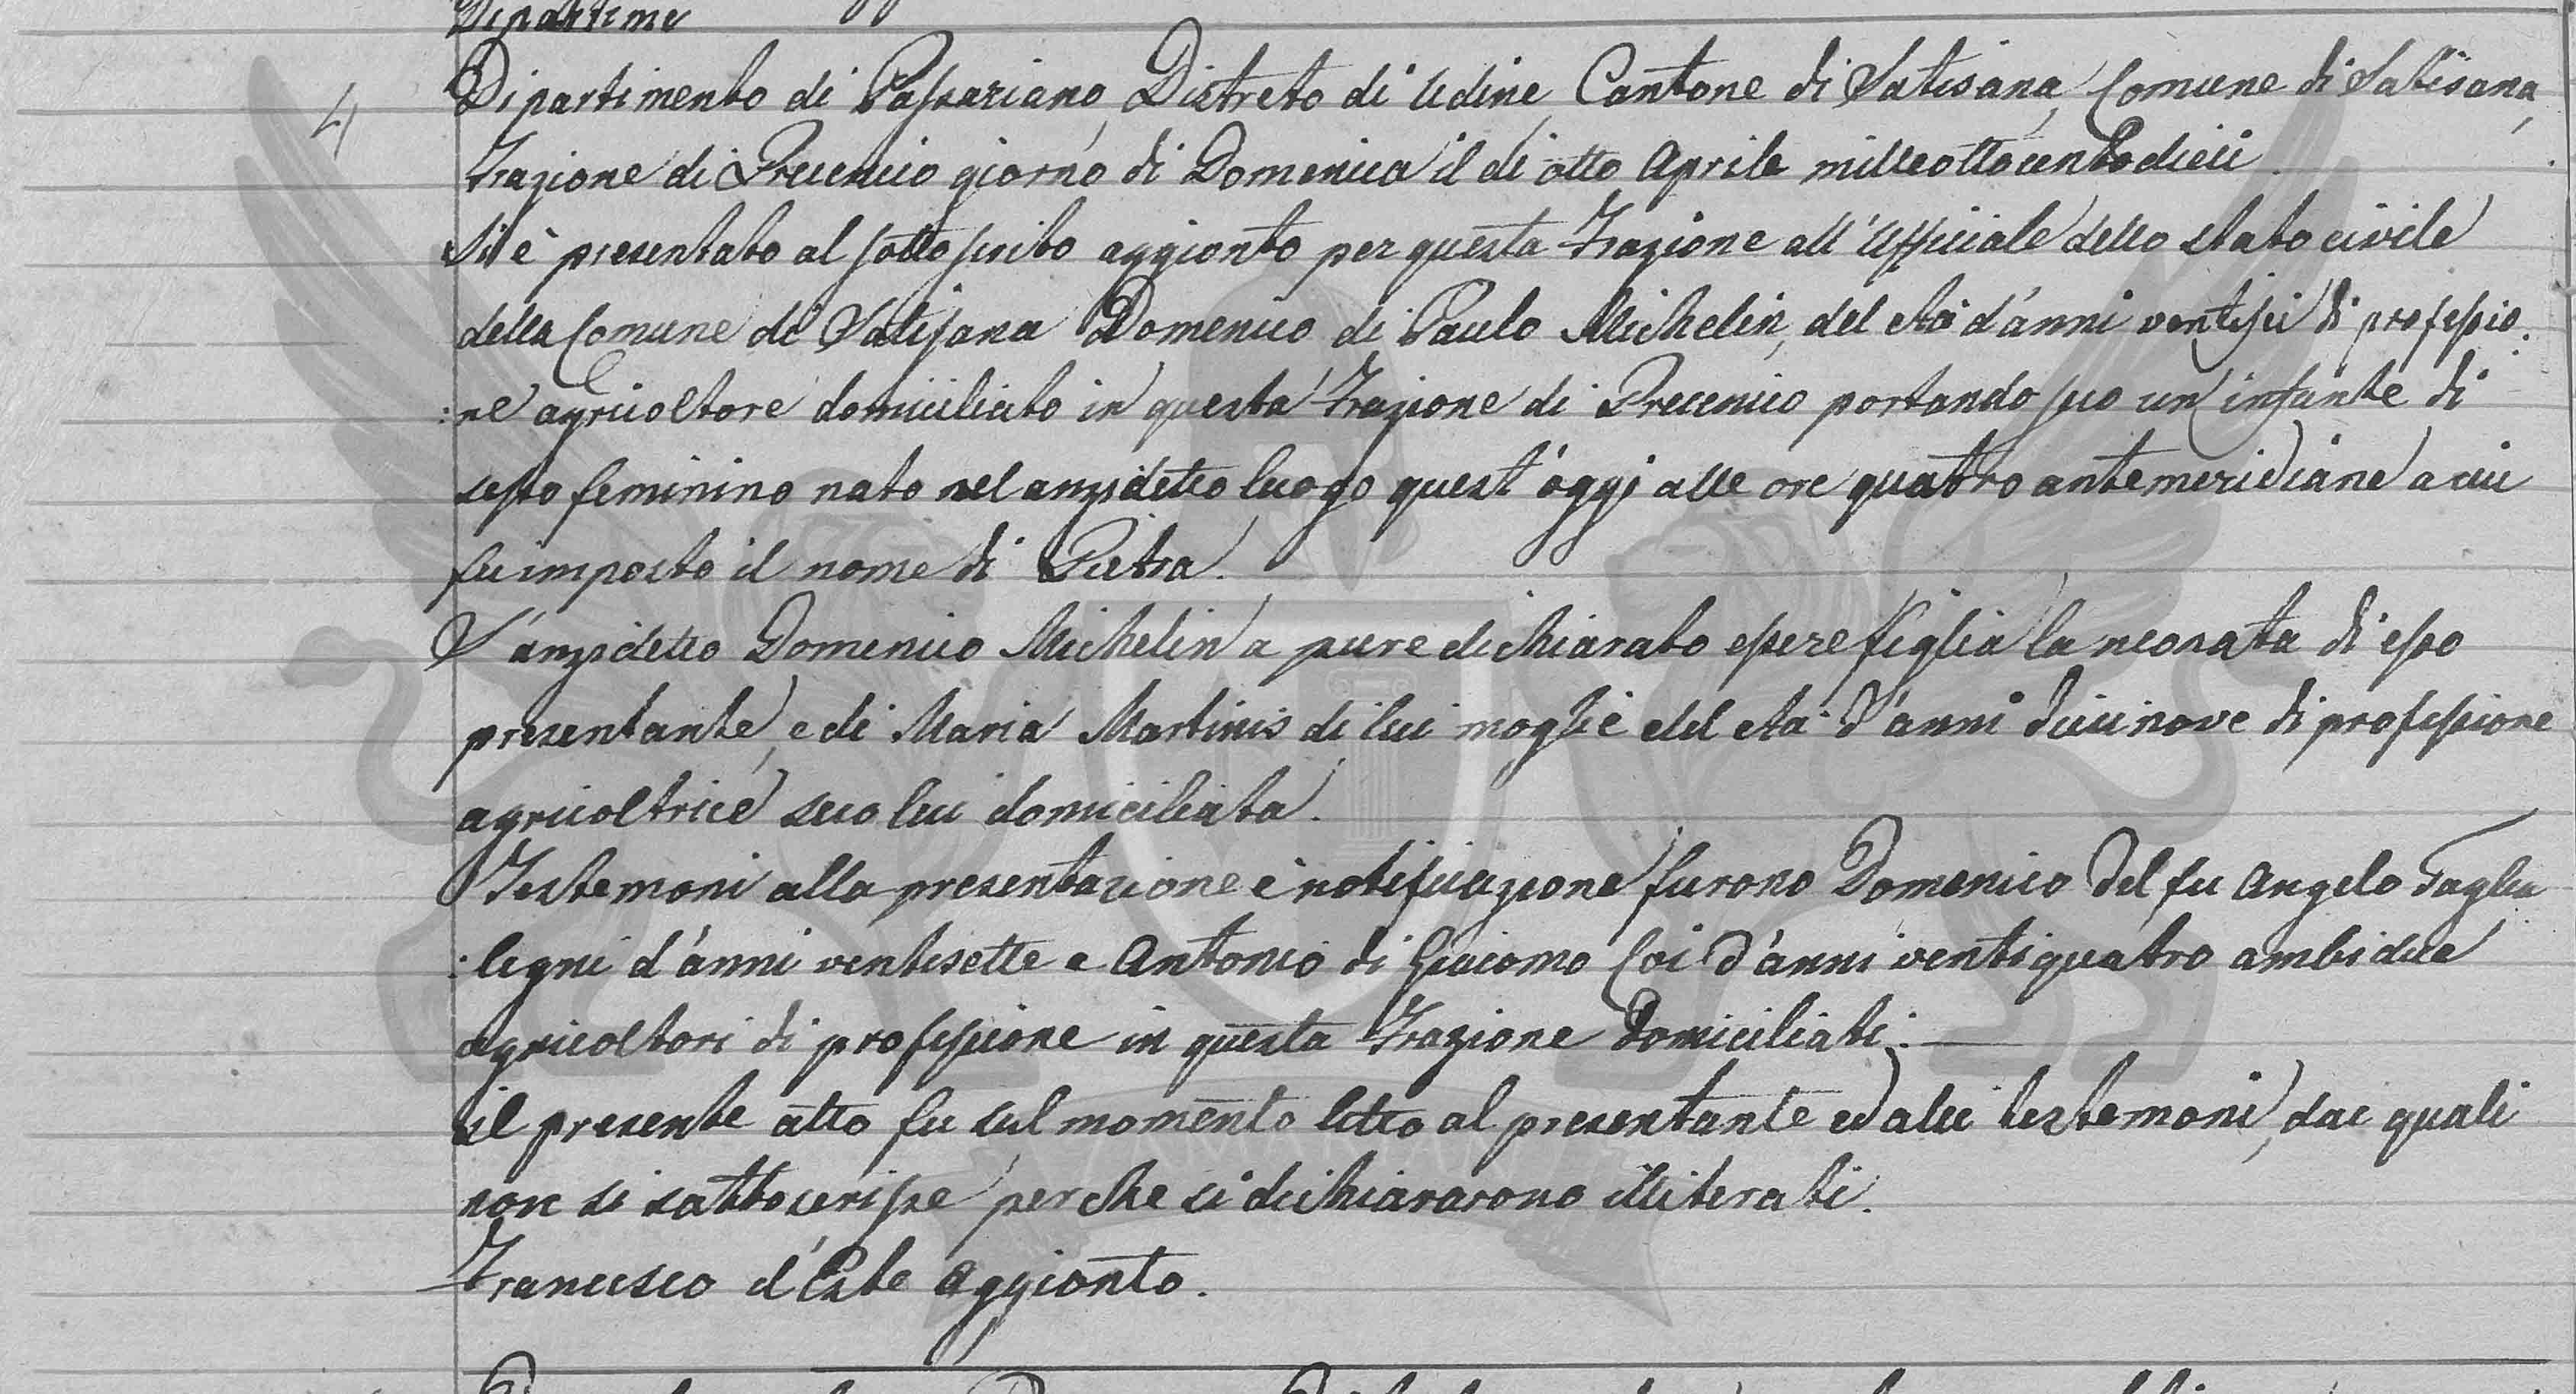 Dipartime
4
Dipartimento di Passariano, Distreto di Udine, Cantone di Latisana, Comune di Latisana,
Frazione di Precenico giorno di Domenica il di otto Aprile milleottocentodieci.
Si è presentato al sottoscrito aggionto per questa Frazione all'Ufficiale dello stato civile
della Comune di Latisana Domenico di Paulo Michelin, del età d'anni ventisei di professio
:ne agricoltore domiciliato in questa Frazione di Precenico portando seco un infante di
sesso feminino nato nel anzidetto luogo quest'oggi alle ore quattro antemeridiane a cui
fu imposto il nome di Pietra.
L'anzidetto Domenico Michelin a pure dichiarato essere figlia la neonata di esso
presentante, e di Maria Martinis di lui moglie del eta d'anni dicinove di professione
agricoltrice seco lui domiciliata.
Testemoni alla presentazione e notificazione furono Domenico del fu Angelo Taglia
:legni d'anni ventisette e Antonio di Giacomo Coi d'anni ventiquatro ambidue
agricoltori di professione in questa Frazione Domiciliati.
il presente atto fu sul momento letto al presentante ed alli testemoni, dai quali
non si sattoscrisse perche si dichiararono illiterati.
Francesco d'Este Aggionto.